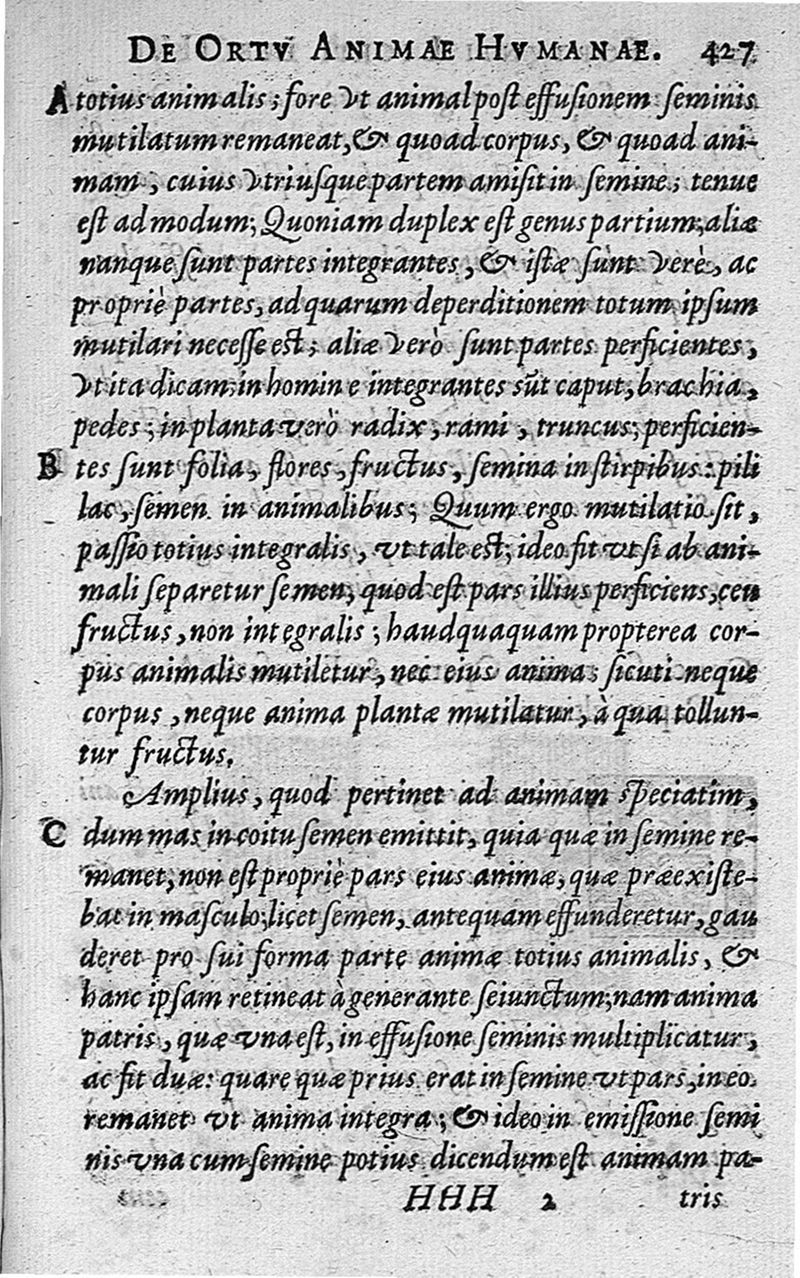 DE ORTV ANIMAE HVMANAE. 427
A totius animalis; fore vt animal post effusionem seminis
mutilatum remaneat, & quoad corpus, & quoad ani-
mam, cuius vtriusque partem amisit in semine; tenue
est admodum; Quoniam duplex est genus partium, aliæ
nanque sunt partes integrantes, & istæ sunt verè, ac
propriè partes, ad quarum deperditionem totum ipsum
mutilari necesse est; aliæ verò sunt partes perficientes,
vt ita dicam, in homine integrantes sūt caput, brachia,
pedes; in planta verò radix, rami, truncus; perficien-
B tes sunt folia, flores, fructus, semina in stirpibus: pili
lac, semen in animalibus; Quum ergo mutilatio sit,
passio totius integralis, vt tale est; ideo fit vt si ab ani-
mali separetur semen, quod est pars illius perficiens, ceu
fructus, non integralis; haudquaquam propterea cor-
pus animalis mutiletur, nec eius anima: sicuti neque
corpus, neque anima plantæ mutilatur, à qua tollun-
tur fructus.
Amplius, quod pertinet ad animam speciatim,
C dum mas in coitu semen emittit, quia quæ in semine re-
manet, non est propriè pars eius animæ, quæ præexiste-
bat in masculo; licet semen, antequam effunderetur, gau
deret pro sui forma parte animæ totius animalis, &
hanc ipsam retineat à generante seiunctum; nam anima
patris, quæ vna est, in effusione seminis multiplicatur,
ac fit duæ: quare quæ prius erat in semine vt pars, in eo
remanet vt anima integra; & ideo in emissione semi
nis vna cum semine potius dicendum est animam pa-
HHH 2 tris